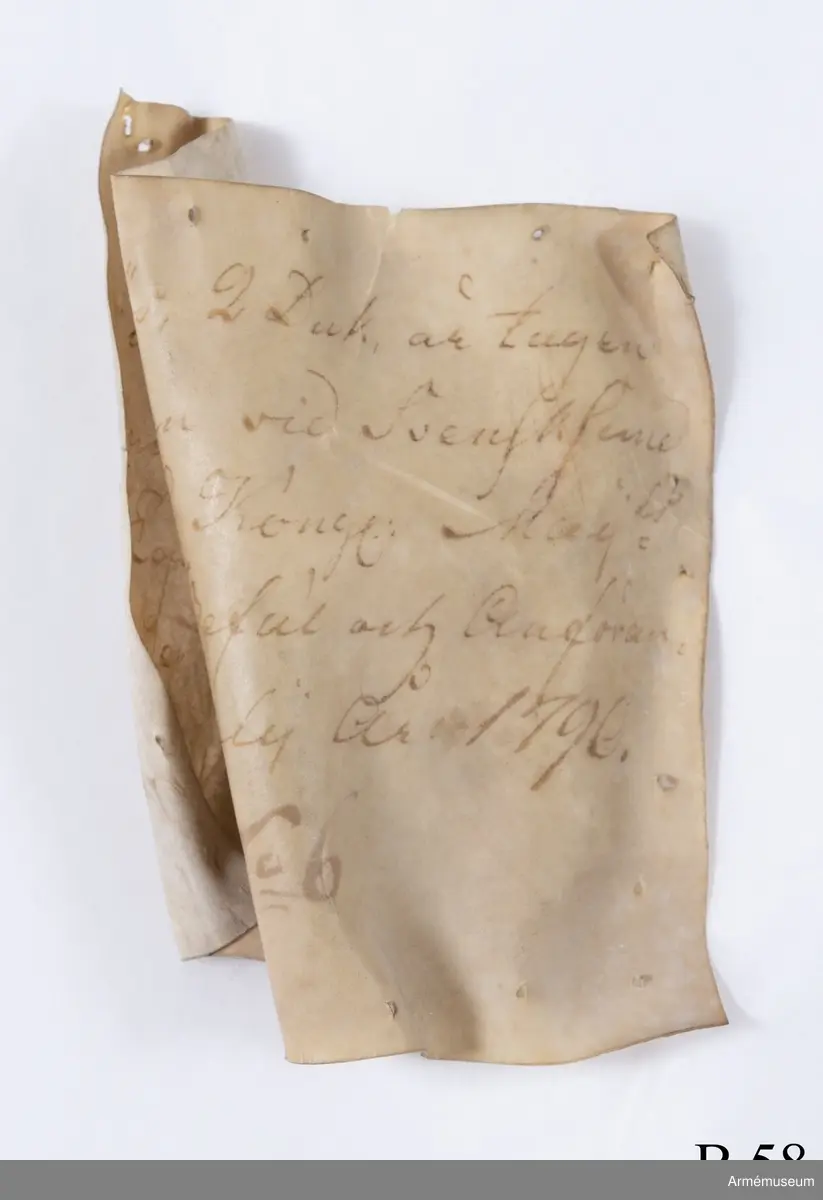 2 Duk, är tagen
vid Svensksund
Kongl. Maij:tz
befäl och Anföran,
lij År 1790.
6
Armémuseum